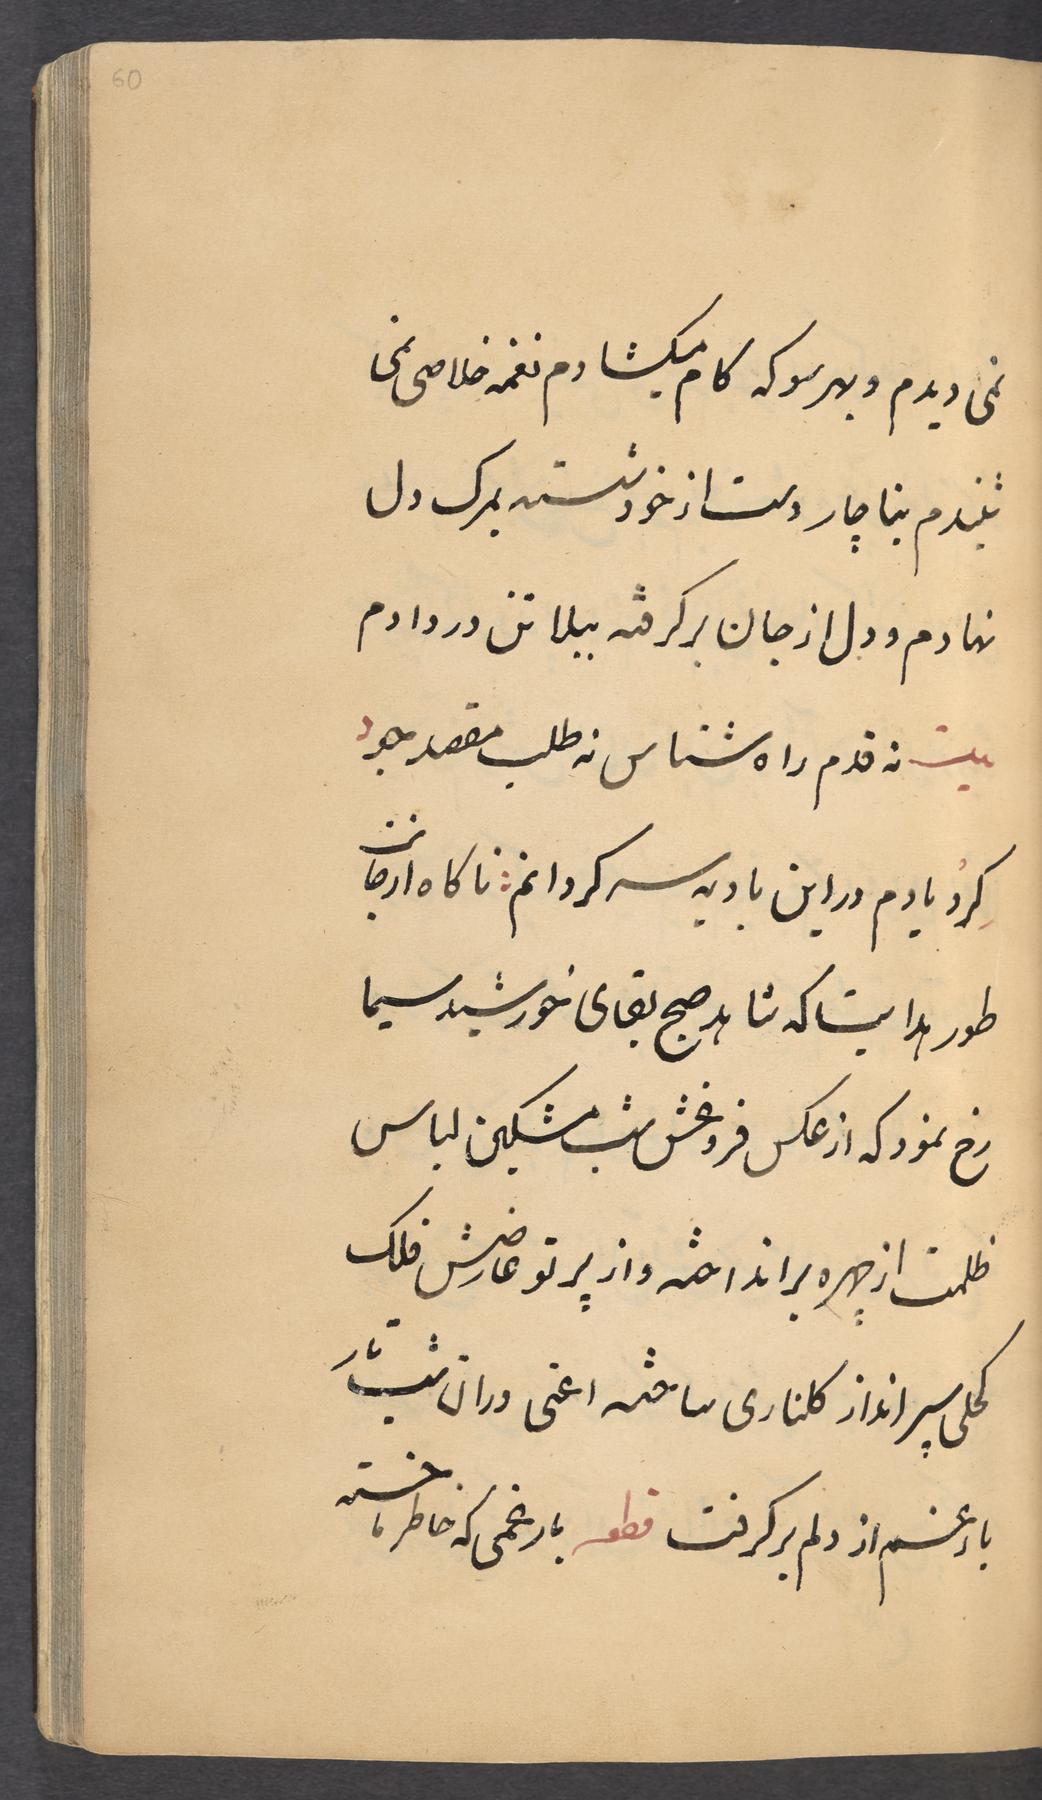 60
نمی دیدم و بهر سو که کام میکشادم نغمه خلاصی نمی
شنیدم بناچار دست از خود شسته بمرک دل
نهادم و دل از جان بر کرفته ببلا تن در دادم
بیت نه قدم راه شناس نه طلب مقصد جو د
کرد یادم در این بادیه سر کردانم : ناکاه از جانب
طور هدایت که شاهد صبح بقای خورشید سیما
رخ نمود که از عکس فروغش شب مشکین لباس
ظلمت از چهره بر انداخته و از پرتو عارضش فلک
کحلی سپر انداز کلناری ساخته اعنی در ان شب تار
بار غم از دلم بر کرفت قطعه بار غمی که خاطر ما خسته